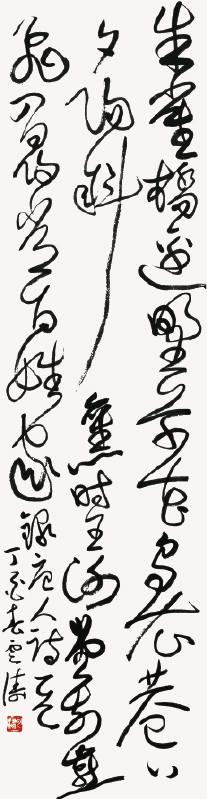 朱雀橋邊野草花烏衣巷口
夕陽斜舊時王謝堂前燕
飛入尋常百姓家錄唐人詩
丁酉春雲濤